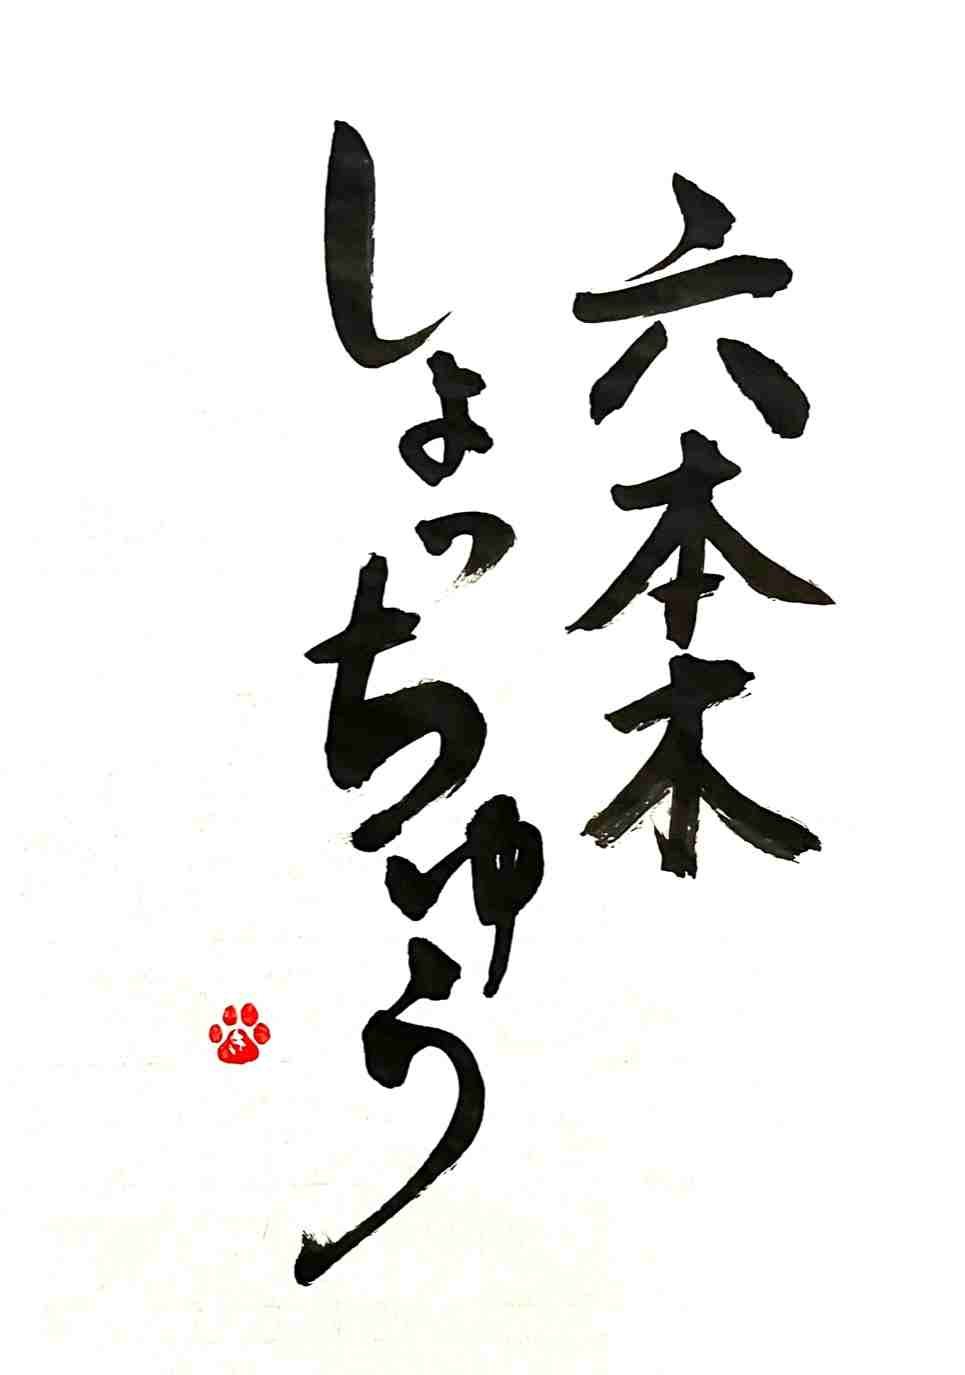 六本木
しょっちゅう